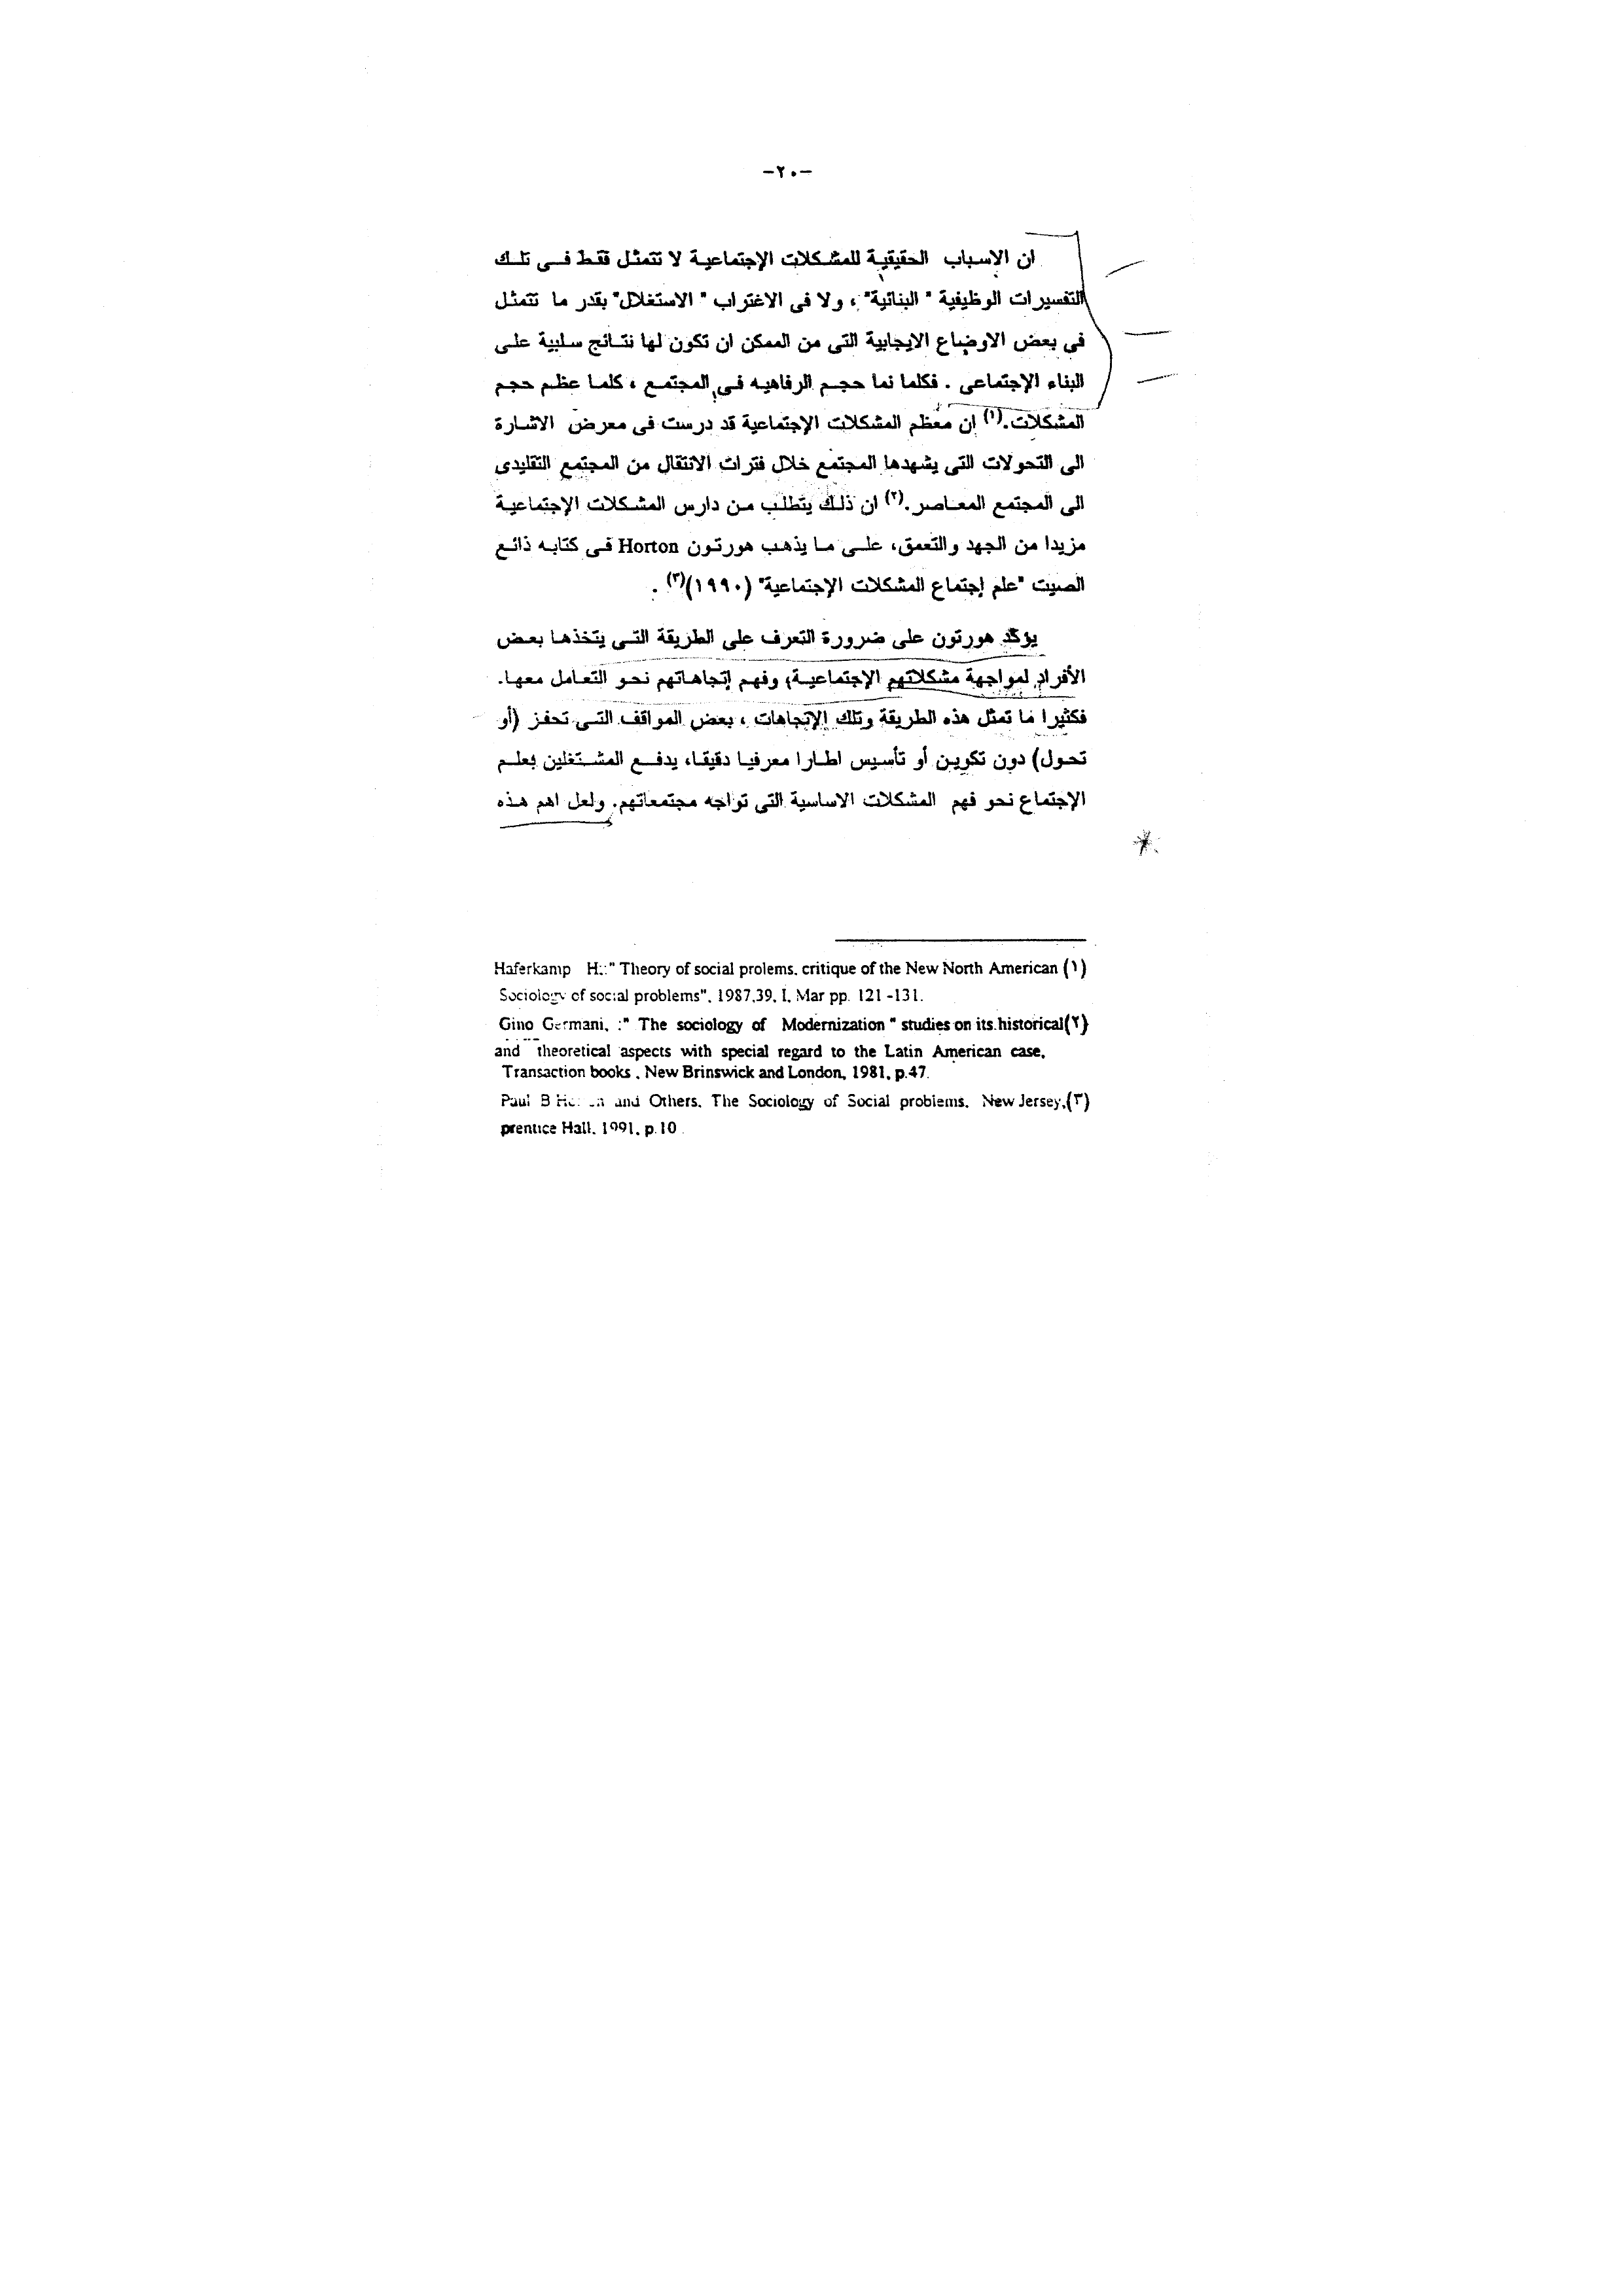 -٢٠-
ان الاسباب الحقيقية للمشكلات الإجتماعية لا تتمثل فقط فى تلك
التفسيرات الوظيفية " البنائية" ، ولا فى الاغتراب " الاستغلال" بقدر ما تتمثل
فى بعض الاوضاع الايجابية التى من الممكن ان تكون لها نتائج سلبية على
البناء الإجتماعى . فكلما نما حجم الرفاهيه فى المجتمع ، كلما عظم حجم
المشكلات.(١) إن معظم المشكلات الإجتماعية قد درست فى معرض الاشارة
الى التحولات التى يشهدها المجتمع خلال فترات الانتقال من المجتمع التقليدى
الى المجتمع المعاصر.(٢) ان ذلك يتطلب من دارس المشكلات الإجتماعية
مزيدا من الجهد والتعمق، على ما يذهب هورتون Horton فى كتابه ذائع
الصيت "علم إجتماع المشكلات الإجتماعية" (١٩٩٠)(٣) .
يؤكد هورتون على ضرورة التعرف على الطريقة التى يتخذها بعض
الأفراد لمواجهة مشكلاتهم الإجتماعية، وفهم إتجاهاتهم نحو التعامل معها.
فكثيرا ما تمثل هذه الطريقة وتلك الإتجاهات ، بعض المواقف التى تحفز (أو
تحول) دون تكوين أو تأسيس اطارا معرفيا دقيقا، يدفع المشتغلين بعلم
الإجتماع نحو فهم المشكلات الاساسية التى تواجه مجتمعاتهم. ولعل اهم هذه
Haferkamp H.:" Theory of social prolems. critique of the New North American (١)
Sociology of social problems", 1987,39, I, Mar pp. 121 -131.
Gino Germani, :" The sociology of Modernization " studies on its historical(٢)
and theoretical aspects with special regard to the Latin American case,
Transaction books , New Brinswick and London, 1981, p.47.
Paul B and Others. The Sociology of Social problems. New Jersey,(٣)
prentice Hall, 1991, p.10